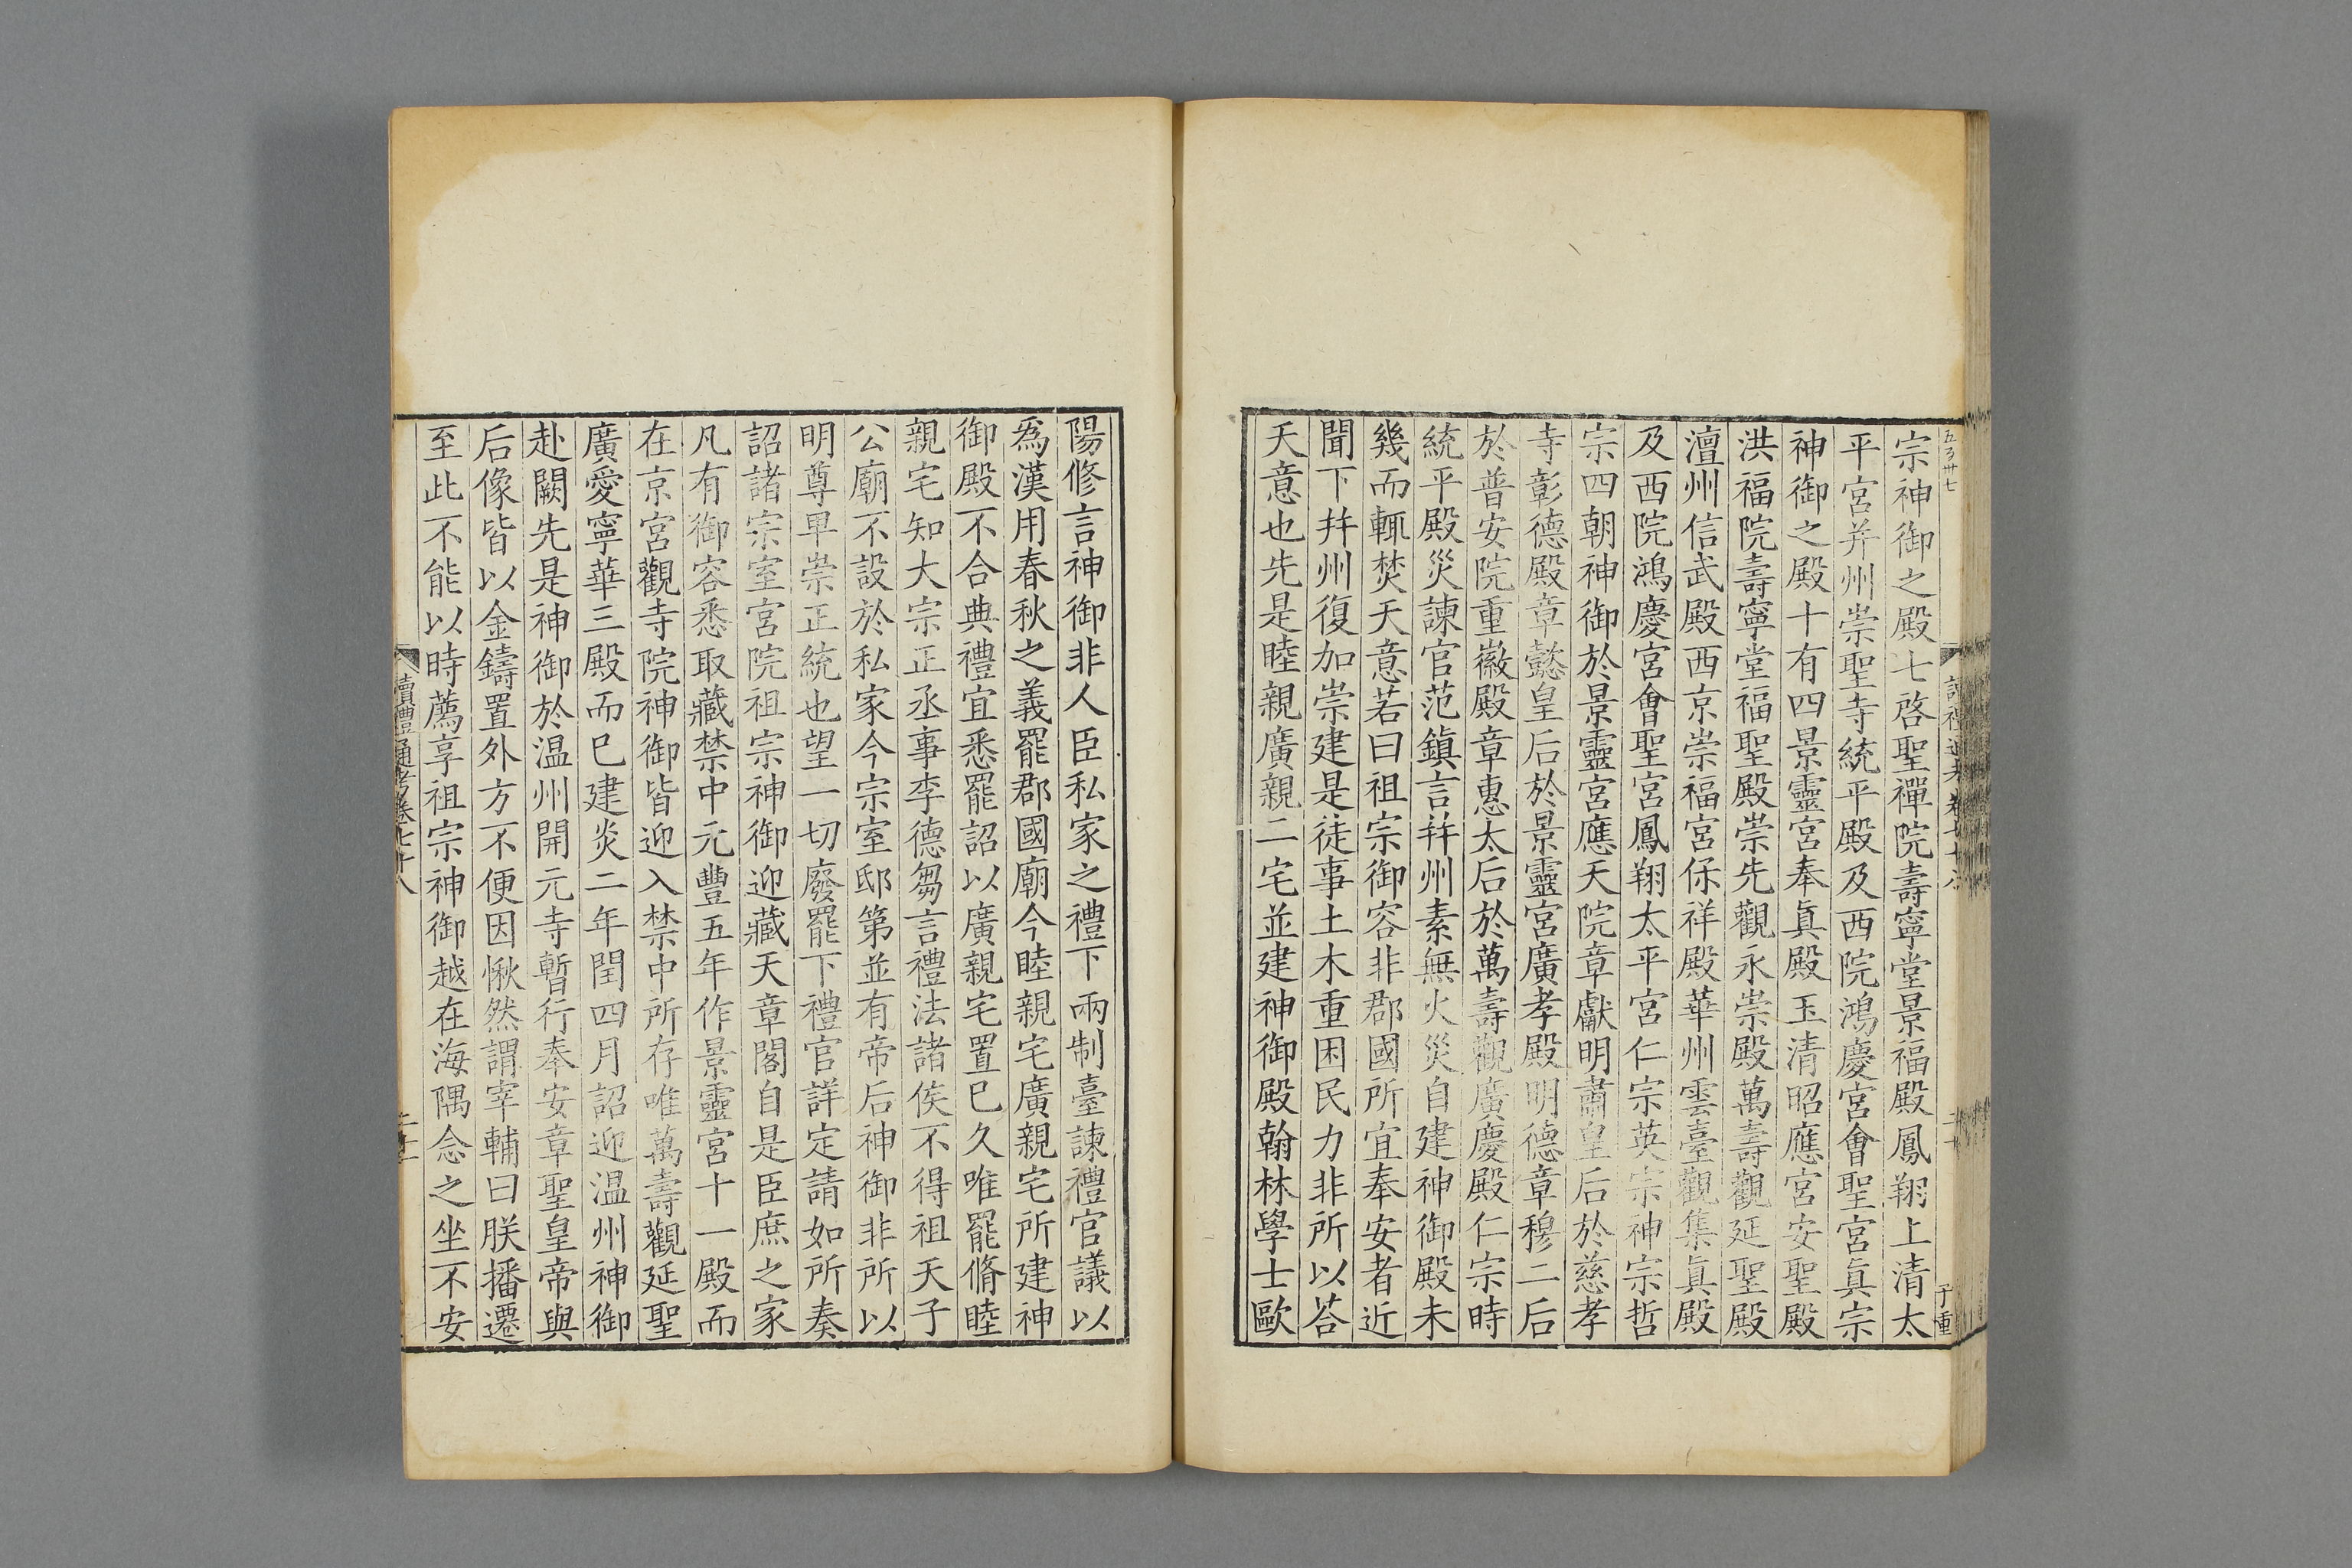 宗神御之殿七啓聖禪院壽寧堂景福殿鳳翔上清太
平宮并州崇聖寺統平殿及西院鴻慶宮會聖宮眞宗
神御之殿十有四景靈宮奉眞殿玉清昭應宮安聖殿
洪福院壽寧堂福聖殿崇先觀永崇殿萬壽觀延聖殿
澶州信武殿西京崇福宮保祥殿華州雲臺觀集眞殿
及西院鴻慶宮會聖宮鳳翔太平宮仁宗英宗神宗哲
宗四朝神御於景靈宮應天院章獻明肅皇后於慈孝
寺彰德殿章懿皇后於景靈宮廣孝殿明德章穆二后
於普安院重徽殿章惠太后於萬壽觀廣慶殿仁宗時
統平殿災諫官范鎮言幷州素無火災自建神御殿未
幾而輒焚天意若曰祖宗御容非郡國所宜奉安者近
聞下幷州復加崇建是徒事土木重困民力非所以荅
天意也先是睦親廣親二宅並建神御殿翰林學士歐
陽修言神御非人臣私家之禮下兩制臺諫禮官議以
爲漢用春秋之義罷郡國廟今睦親宅廣親宅所建神
御殿不合典禮宜悉罷詔以廣親宅置已久唯罷脩睦
親宅知大宗正丞事李德芻言禮法諸侯不得祖天子
公廟不設於私家今宗室邸第並有帝后神御非所以
明尊卑崇正統也望一切廢罷下禮官詳定請如所奏
詔諸宗室宮院祖宗神御迎藏天章閣自是臣庶之家
凡有御容悉取藏禁中元豐五年作景靈宮十一殿而
在京宮觀寺院神御皆迎入禁中所存唯萬壽觀延聖
廣愛寧華三殿而已建炎二年閏四月詔迎温州神御
赴闕先是神御於温州開元寺暫行奉安章聖皇帝與
后像皆以金鑄置外方不便因愀然謂宰輔曰朕播遷
至此不能以時薦享祖宗神御越在海隅念之坐不安
讀禮通考卷七十八